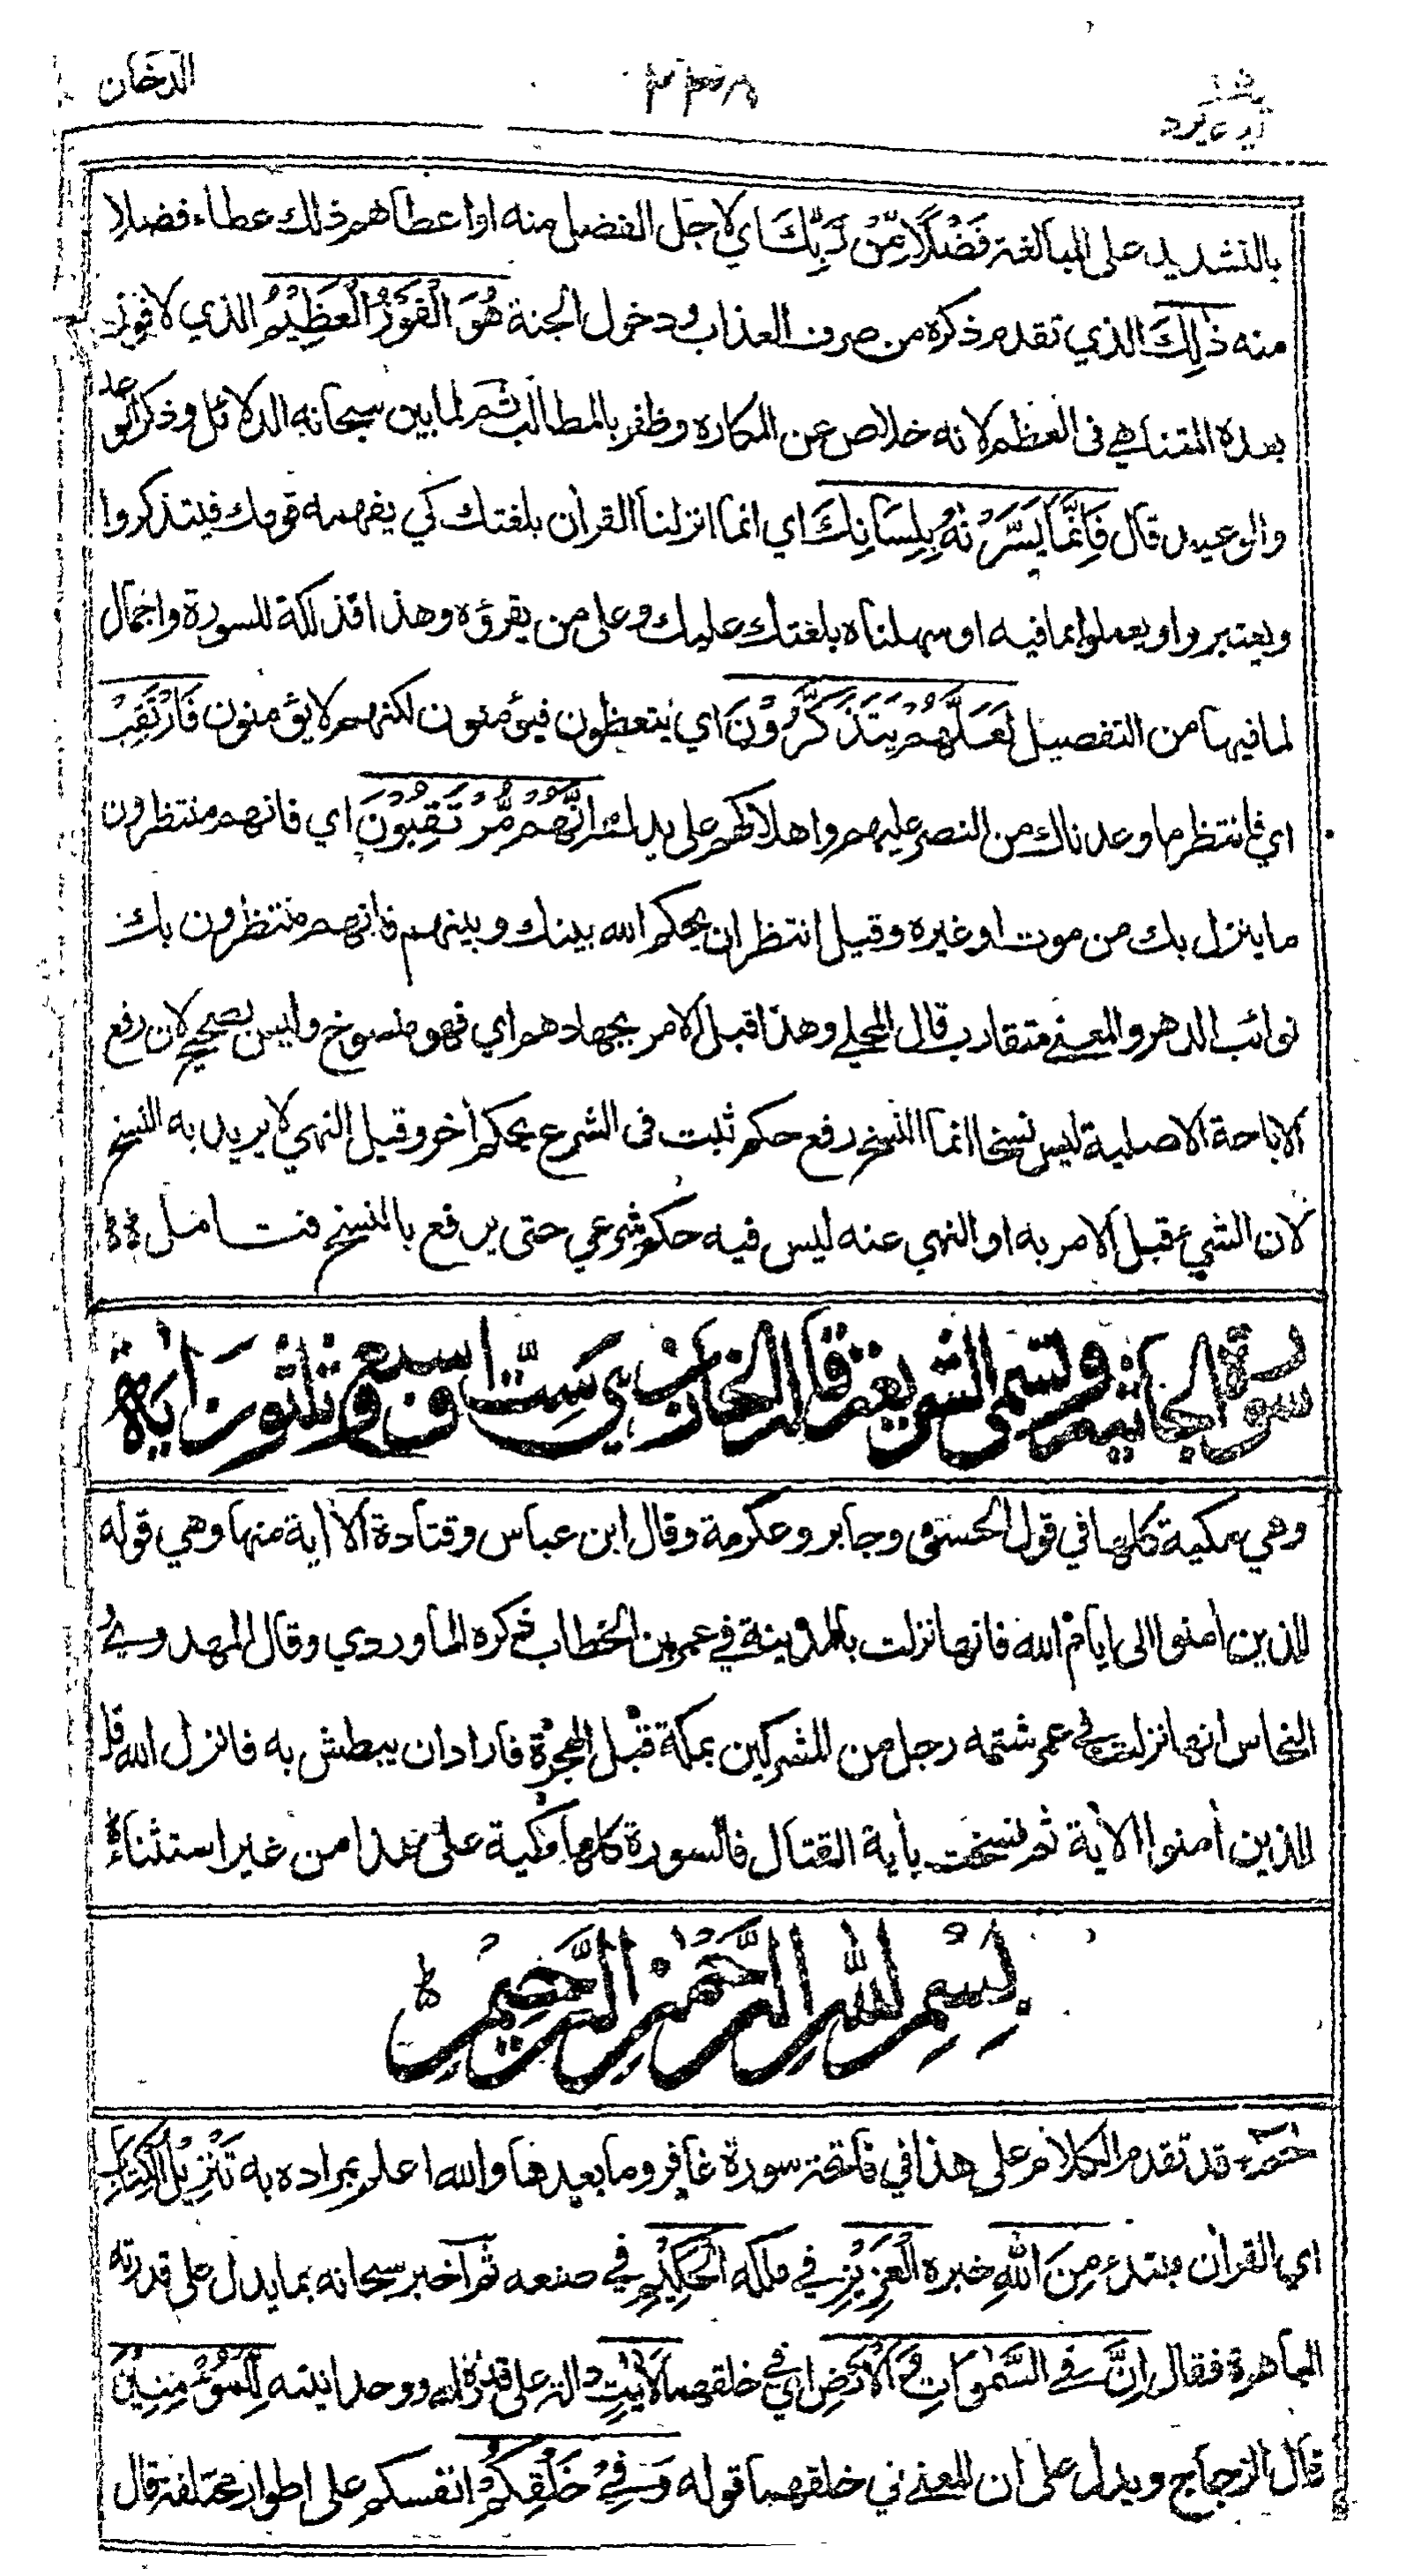 الدخان
اليه يرد
بالتشديد على المبالغة فَضْلًا مِّنْ رَّبِّكَ اي لاجل الفضل منه او اعطاهم ذلك عطاء فضلا
منه ذٰلِكَ الذي تقدم ذكره من صرف العذاب ودخول الجنة هُوَ الْفَوْزُ الْعَظِيْمُ الذي لا فوز
بعده المتناهي فى العظم لانه خلاص عن المكاره وظفر بالمطالب ثم لما بين سبحانه الدلائل وذكر الوعد
والوعيد قال فَاِنَّمَا يَسَّرْنٰهُ بِلِسَانِكَ اي انما انزلنا القرأن بلغتك كي يفهمه قومك فيتذكروا
ويعتبروا ويعملوا بما فيه او سهلناه بلغتك عليك وعلى من يقرؤه وهذا فذلكة للسورة واجمال
لما فيها من التفصيل لَعَلَّهُمْ يَتَذَكَّرُوْنَ اي يتعظون فيؤمنون لكنهم لا يؤمنون فَارْتَقِبْ
اي فانتظر ما وعدناك من النصر عليهم واهلاكهم على يدك اِنَّهُمْ مُّرْتَقِبُوْنَ اي فانهم منتظرون
ما ينزل بك من موت او غيره وقيل انتظر ان يحكم الله بينك وبينهم فانهم منتظرون بك
نوائب الدهر والمعنى متقارب قال المحلي وهذا قبل الامر بجهادهم اي فهو منسوخ وليس بصحيح لان رفع
الاباحة الاصلية ليس نسخا انما النسخ رفع حكم ثبت فى الشرع بحكم أخر وقيل النهي لا يريد به النسخ
لان الشيء قبل الامر به او النهي عنه ليس فيه حكم شرعي حتى يرفع بالنسخ فتامل
سورة الجاثية وتسمى الشريعة قاله الخازن هي ست او سبع وثلثون اية
وهي مكية كلها في قول الحسن وجابر وعكرمة وقال ابن عباس وقتادة الا أية منها وهي قوله
للذين امنوا الى ايام الله فانها نزلت بالمدينة في عمر بن الخطاب ذكره الماوردي وقال المهدوي و
النحاس انها نزلت في عمر شتمه رجل من المشركين بمكة قبل الهجرة فاراد ان يبطش به فانزل الله قل
للذين أمنوا الأية ثم نسخت بأية القتال فالسورة كلها مكية على هذا من غير استثناء
بِسْمِ اللهِ الرَّحْمٰنِ الرَّحِيْمِ
حٰمٓ قد تقدم الكلام على هذا في فاتحة سورة غافر وما بعدها والله اعلم بمراده به تَنْزِيْلُ الْكِتَابِ
اي القرأن مبتدء مِنَ اللهِ خبره الْعَزِيْزِ في ملكه الْحَكِيْمِ في صنعه ثم اخبر سبحانه بما يدل على قدرته
الباهرة فقال اِنَّ فِي السَّمٰوٰاتِ وَالْاَرْضِ اي في خلقهما لَاٰيٰتٍ دالة على قدرة الله ووحدانيته لِّلْمُؤْمِنِيْنَ
قال الزجاج ويدل على ان المعنى في خلقهما قوله وَفِيْ خَلْقِكُمْ انفسكم على اطوار مختلفة قال